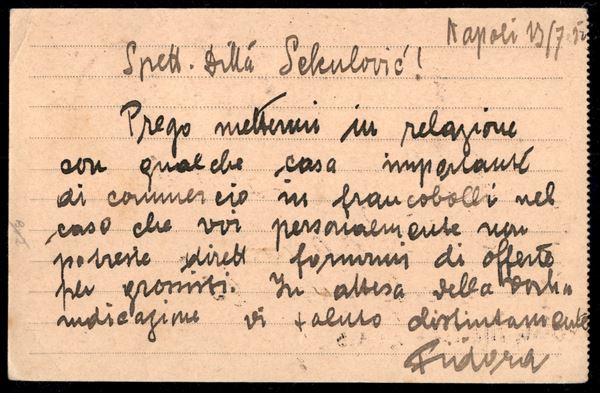 Napoli 13/7
Spett. Dittá Sekulović!
Prego mettermi in relazione
con qualche casa importante
di commercio in francobolli nel
caso che voi personalmente non
potreste dirett fornirmi di offerte
per grossisti. In attesa della vostra
indicazione vi saluto distintamente